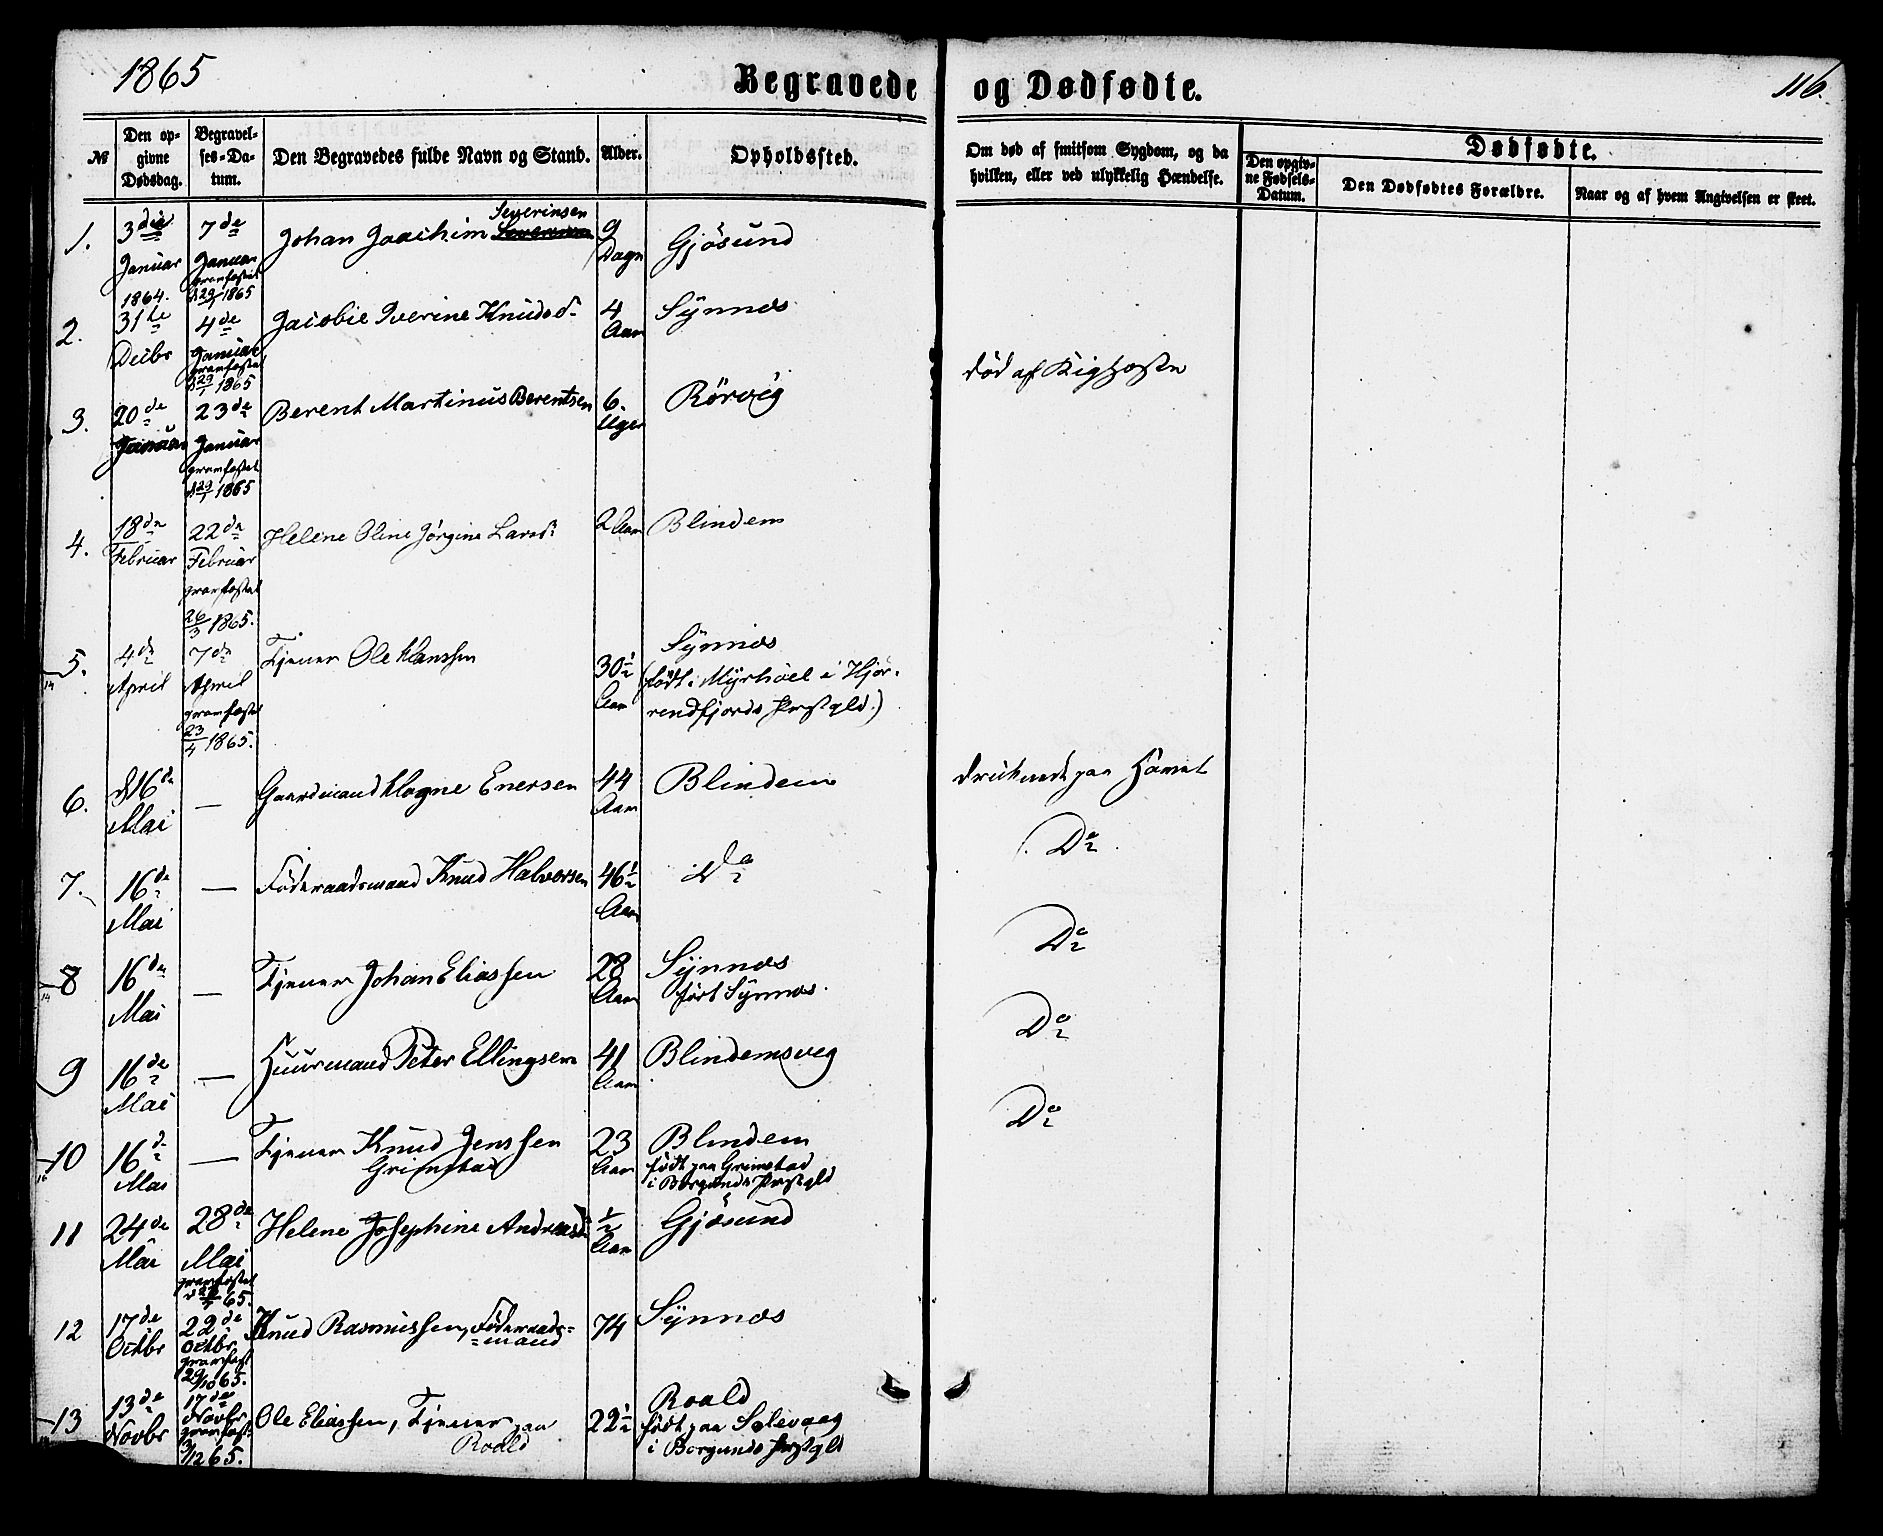 1865
Begravede og Dødfødte.
116.
№
Den op-
givne
Dødsdag.
Begravel-
ses-Da-
tum.
Den Begravedes fulde Navn og Stand.
Alder.
Opholdssted.
Om død af smitsom Sygdom, og da
hvilken, eller ved ulykkelig Hændelse.
Dødfødte.
Den opgiv-
ne Fødsels-
Datum.
Den Dødfødtes Forældre.
Naar og af hvem Angivelsen er skeet.
1.
3die
Januar
7de
Januar
gramfæstet
d 29/1 1865
Johan Joachim Severinsen
9
Dage
Gjøsund
2.
1864.
31te
Decbr
4de
Januar
gramfæstet
d 29/1 1865
Jacobie Iverine Knudsd.
4
Aar
Synnes
3.
20de
Januar
23de
Januar
gramfæstet
d 29/1 1865
Berent Martinus Berentsen
6.
Uger
Rørvig
død af Kighoste
4.
18de
Februar
22de
Februar
gramfæstet
26/3 1865.
Helene Oline Jørgine Larsd.
2 Aar
Blindem
5.
14
4de
April
7de
April
gramfæstet
23/4 1865.
Tjener Ole Hanssen
30½
Aar
Synnes
(født i Myrhøel i Hjør-
rendfjords Prstgld.)
6.
d 16de
Mai
—
Gaardmand Magne Enersen
44
Aar
Blindem
druknede paa Havet
7.
16de
Mai
—
Føderaadsmand Knud Halvorsen
46½
Aar
Do
Do
8
14
16de
Mai
—
Tjener Johan Eliassen
28
Aar
Synnes
født Synnes.
Do
9
16de
Mai
—
Huusmand Peter Ellingsen
41
Aar
Blindemsveg
Do
10
16
16de
Mai
—
Tjener Knud Jenssen
Grimstad
23
Aar
Blindem
født paa Grimstad
i Borgunds Prstgld
Do
11
24de
Mai
28de
Mai
gramfæstet
65.
Helene Josephine Andreasd
½
Aar
Gjøsund
12
17de
Octbr
22de
Octbr.
gramfæst
29/10 65.
Knud Rasmussen, Føderaads-
mand
74
Synnes
13
13de
Novbr
17de
Novbr.
gramfæst.
3/12 65.
Ole Eliassen, Tjener paa
Roald
22½
Roald
født paa Solevaag
i Borgunds Prstgld